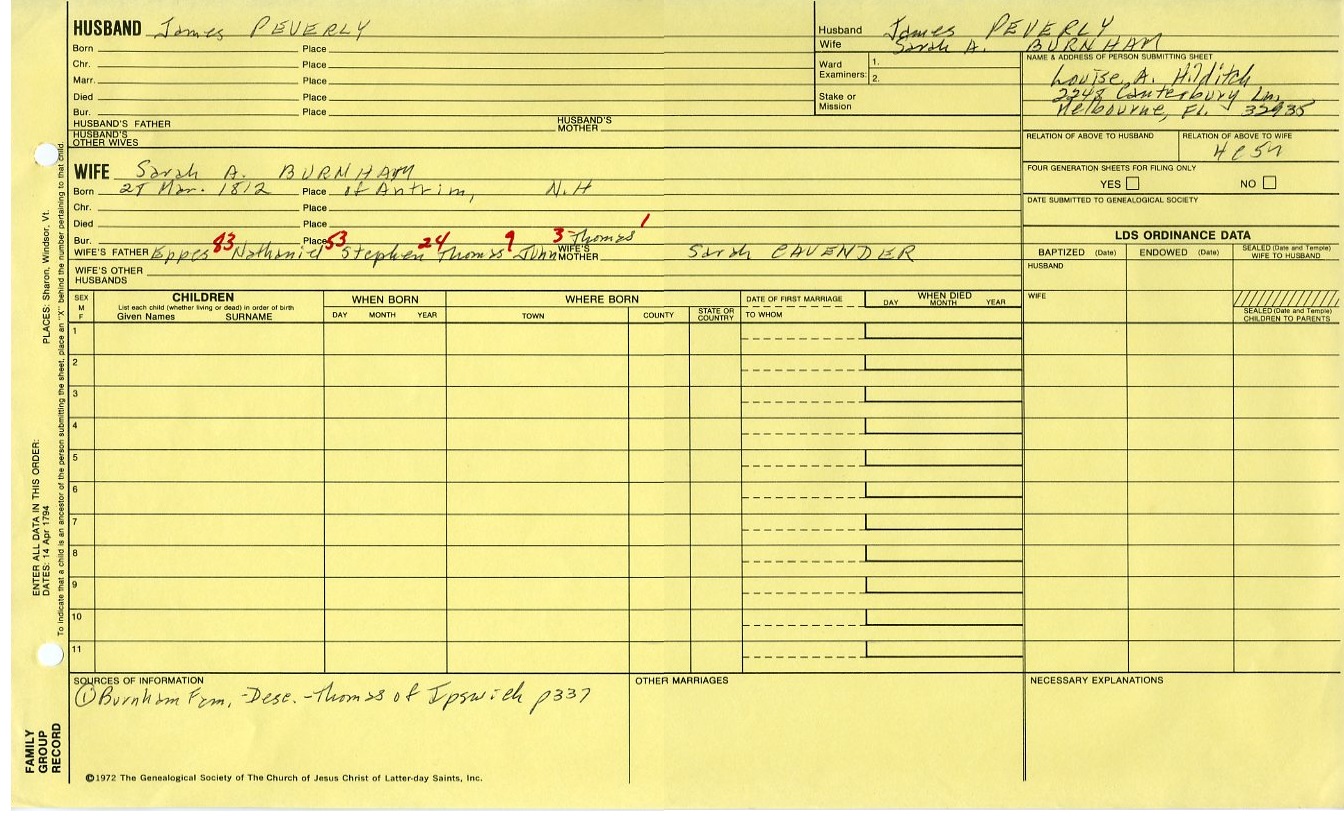 HUSBAND James PEVERLY
Born Place
Chr. Place
Marr. Place
Died Place
Bur. Place
HUSBAND'S FATHER HUSBAND'S MOTHER
HUSBAND'S OTHER WIVES
Husband James PEVERLY
Wife Sarah A. BURNHAM
Ward Examiners: 1.
2.
Stake or Mission
NAME & ADDRESS OF PERSON SUBMITTING SHEET
Louise A. Hilditch
2248 Canterbury Ln.
Melbourne, Fl. 32935
RELATION OF ABOVE TO HUSBAND RELATION OF ABOVE TO WIFE
FOUR GENERATION SHEETS FOR FILING ONLY
YES NO
DATE SUBMITTED TO GENEALOGICAL SOCIETY
WIFE Sarah A. BURNHAM
Born Mar. 1812 Place of Antrim, N.H
Chr. Place
Died Place
Bur. Place
WIFE'S FATHER Eppes 83 Nathaniel 53 Stephen 24 Thomas 9 John 3 Thomas 1 WIFE'S MOTHER Sarah CAVENDER
WIFE'S OTHER HUSBANDS
LDS ORDINANCE DATA
BAPTIZED (Date) ENDOWED (Date) SEALED (Date and Temple) WIFE TO HUSBAND
HUSBAND
WIFE
SEALED (Date and Temple) CHILDREN TO PARENTS
SEX M F
CHILDREN
List each child (whether living or dead) in order of birth
Given Names SURNAME
WHEN BORN
DAY MONTH YEAR
WHERE BORN
TOWN COUNTY STATE OR COUNTRY
DATE OF FIRST MARRIAGE
TO WHOM
WHEN DIED
DAY MONTH YEAR
1
2
3
4
5
6
7
8
9
10
11
SOURCES OF INFORMATION
① Burnham Fam, -Desc. -Thomas of Ipswich p337
OTHER MARRIAGES
NECESSARY EXPLANATIONS
©1972 The Genealogical Society of The Church of Jesus Christ of Latter-day Saints, Inc.
FAMILY GROUP RECORD
ENTER ALL DATA IN THIS ORDER:
DATES: 14 Apr 1794
PLACES: Sharon, Windsor, Vt.
To indicate that a child is an ancestor of the person submitting the sheet, place an "X" behind the number pertaining to that child.